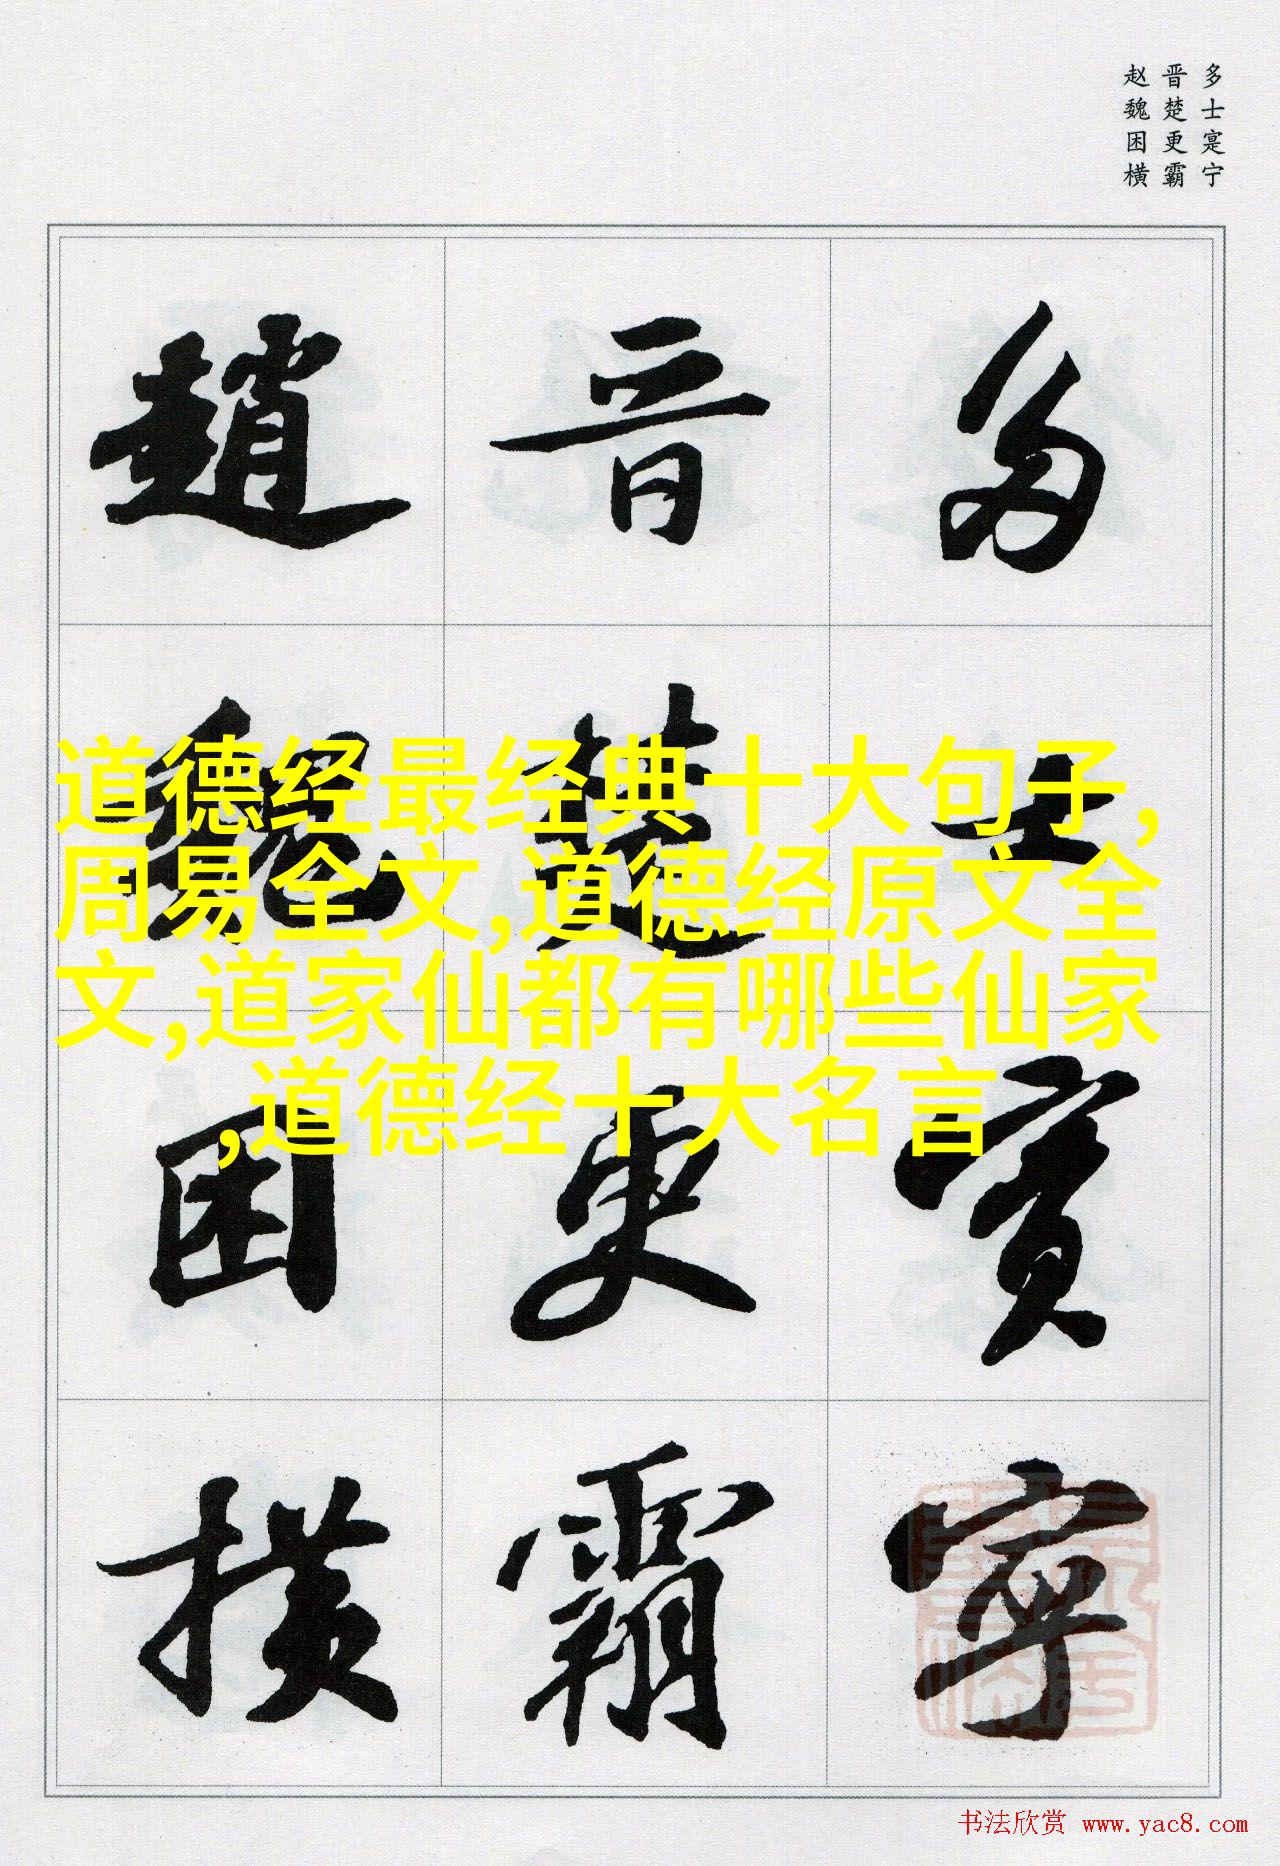 多士寔宁
晋楚更霸
赵魏困横
多士實寧
晋楚更霸
趙魏困横
道德经最经典十大句子,
周易全文,道德经原文全
文,道家仙都有哪些仙家
,道德经十大名言
书法欣赏 www.yac8.com